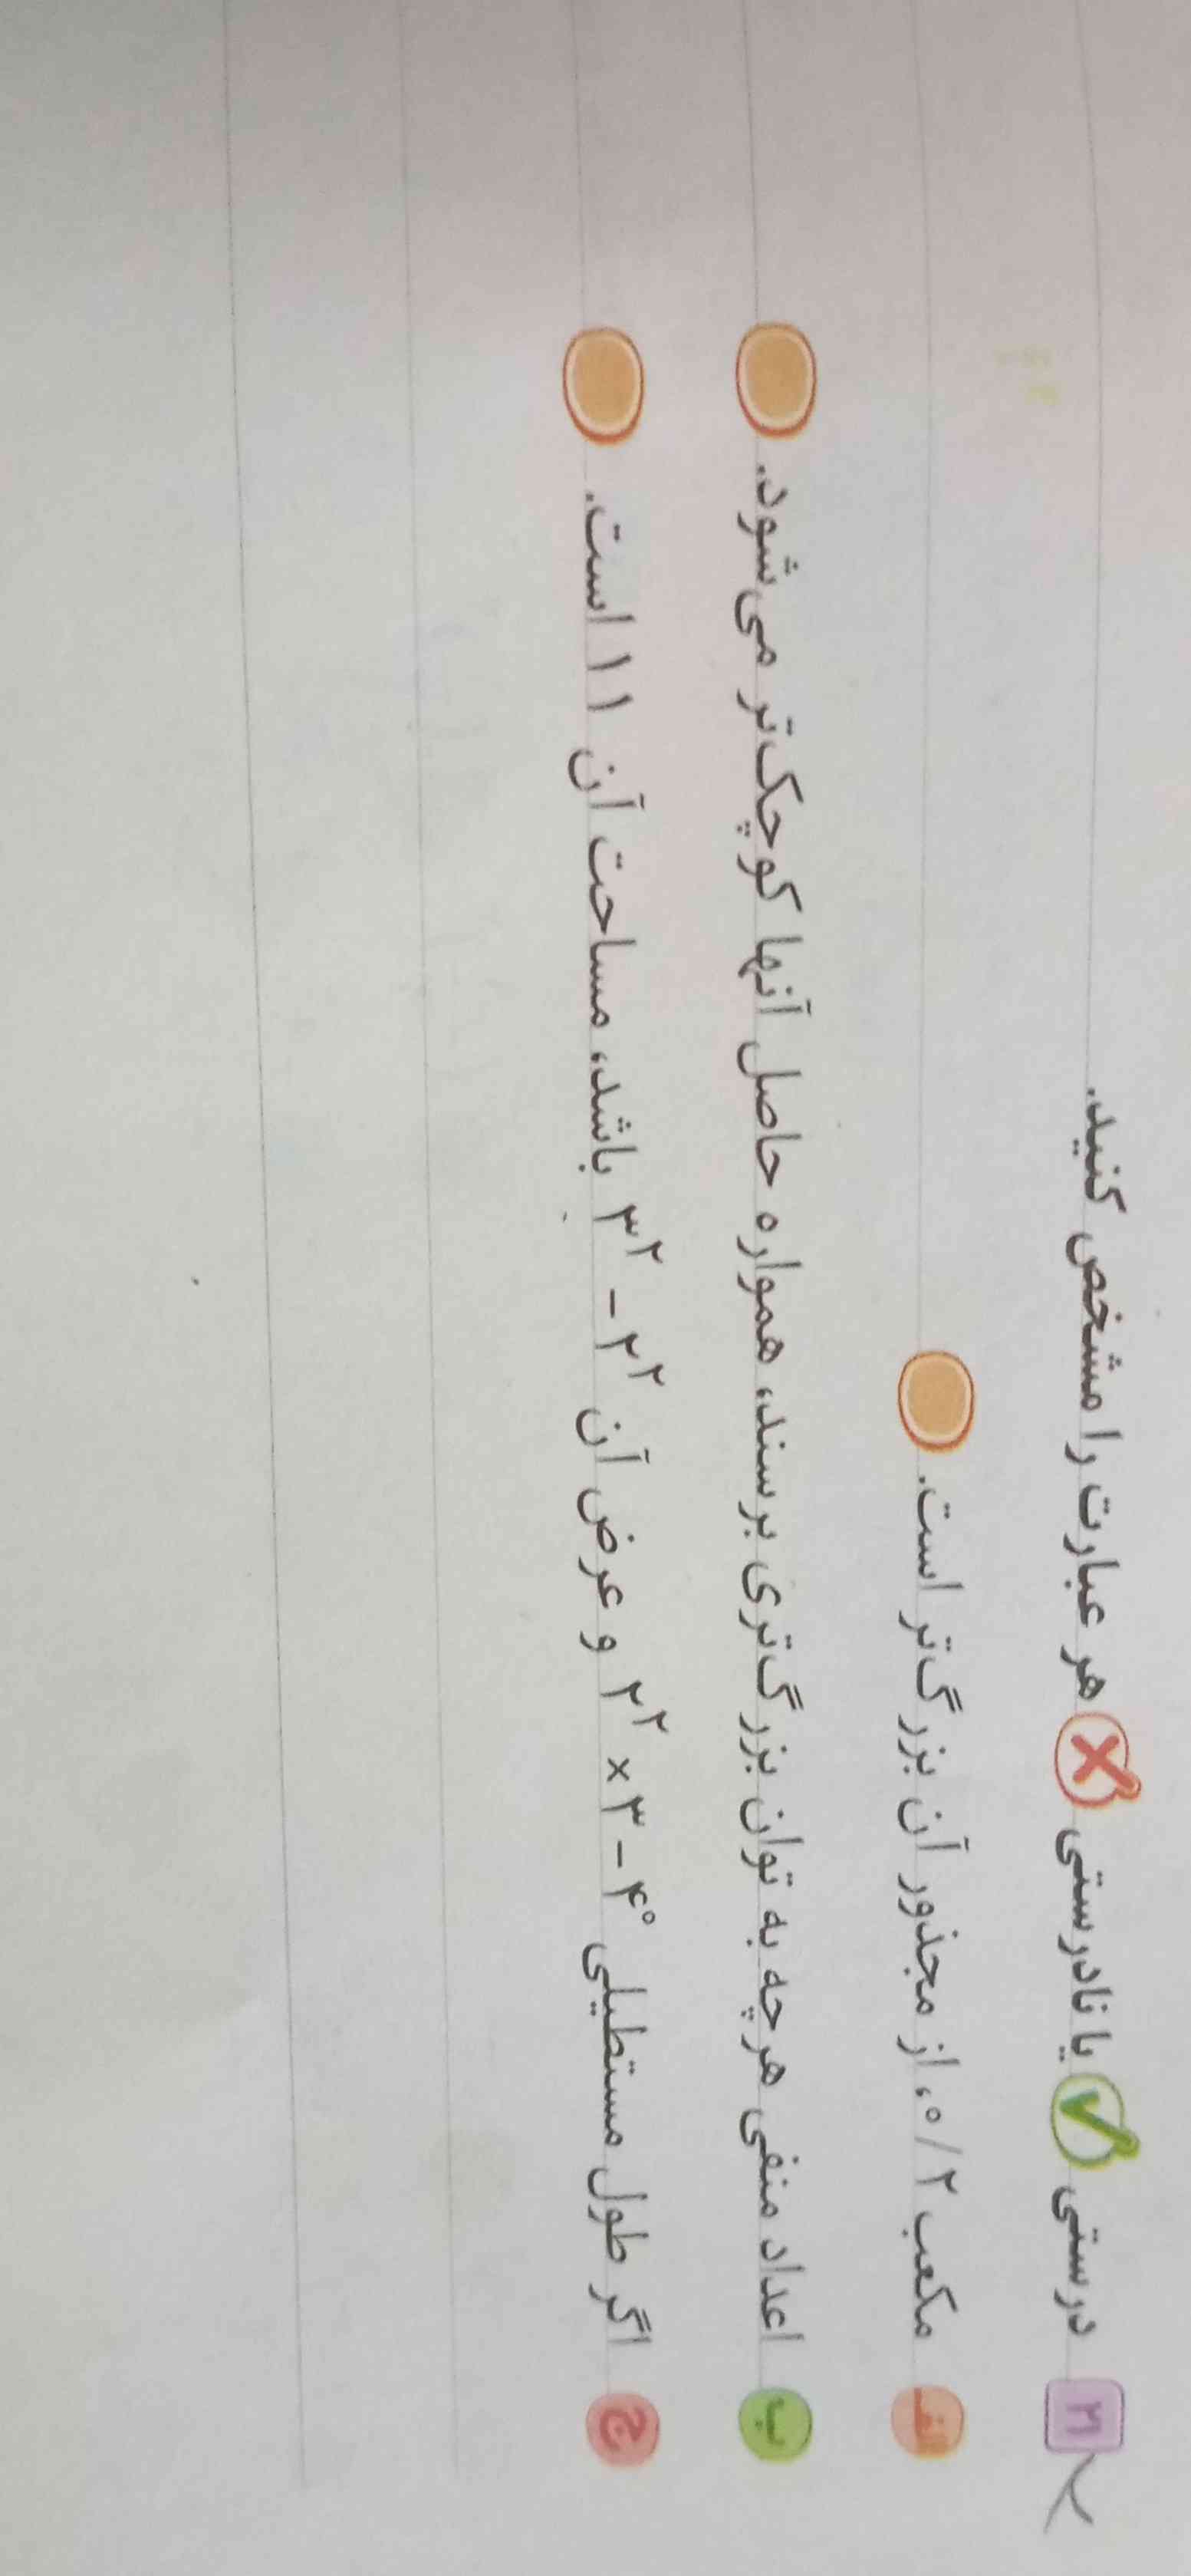 ۲۱ درستی ✓ یا نادرستی ✗ هر عبارت را مشخص کنید.
الف مکعب ۰/۲، از مجذور آن بزرگ‌تر است.
ب اعداد منفی هرچه به توان بزرگ‌تری برسند، همواره حاصل آنها کوچک‌تر می‌شود.
ج اگر طول مستطیلی ۲² × ۳ − ۴⁰ و عرض آن ۳² − ۲² باشد، مساحت آن ۱۱ است.